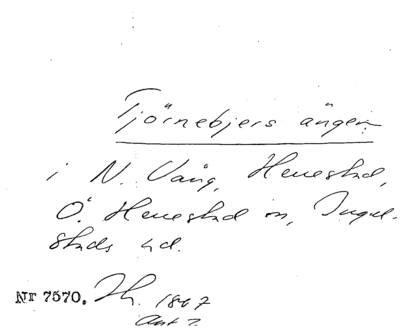 Tjörnebjers ängen
i N. Vång, Herrestad,
Ö. Herrestad sn, Ingel-
stads hd.
Nr 7570. Th. 1847
Akt 7.